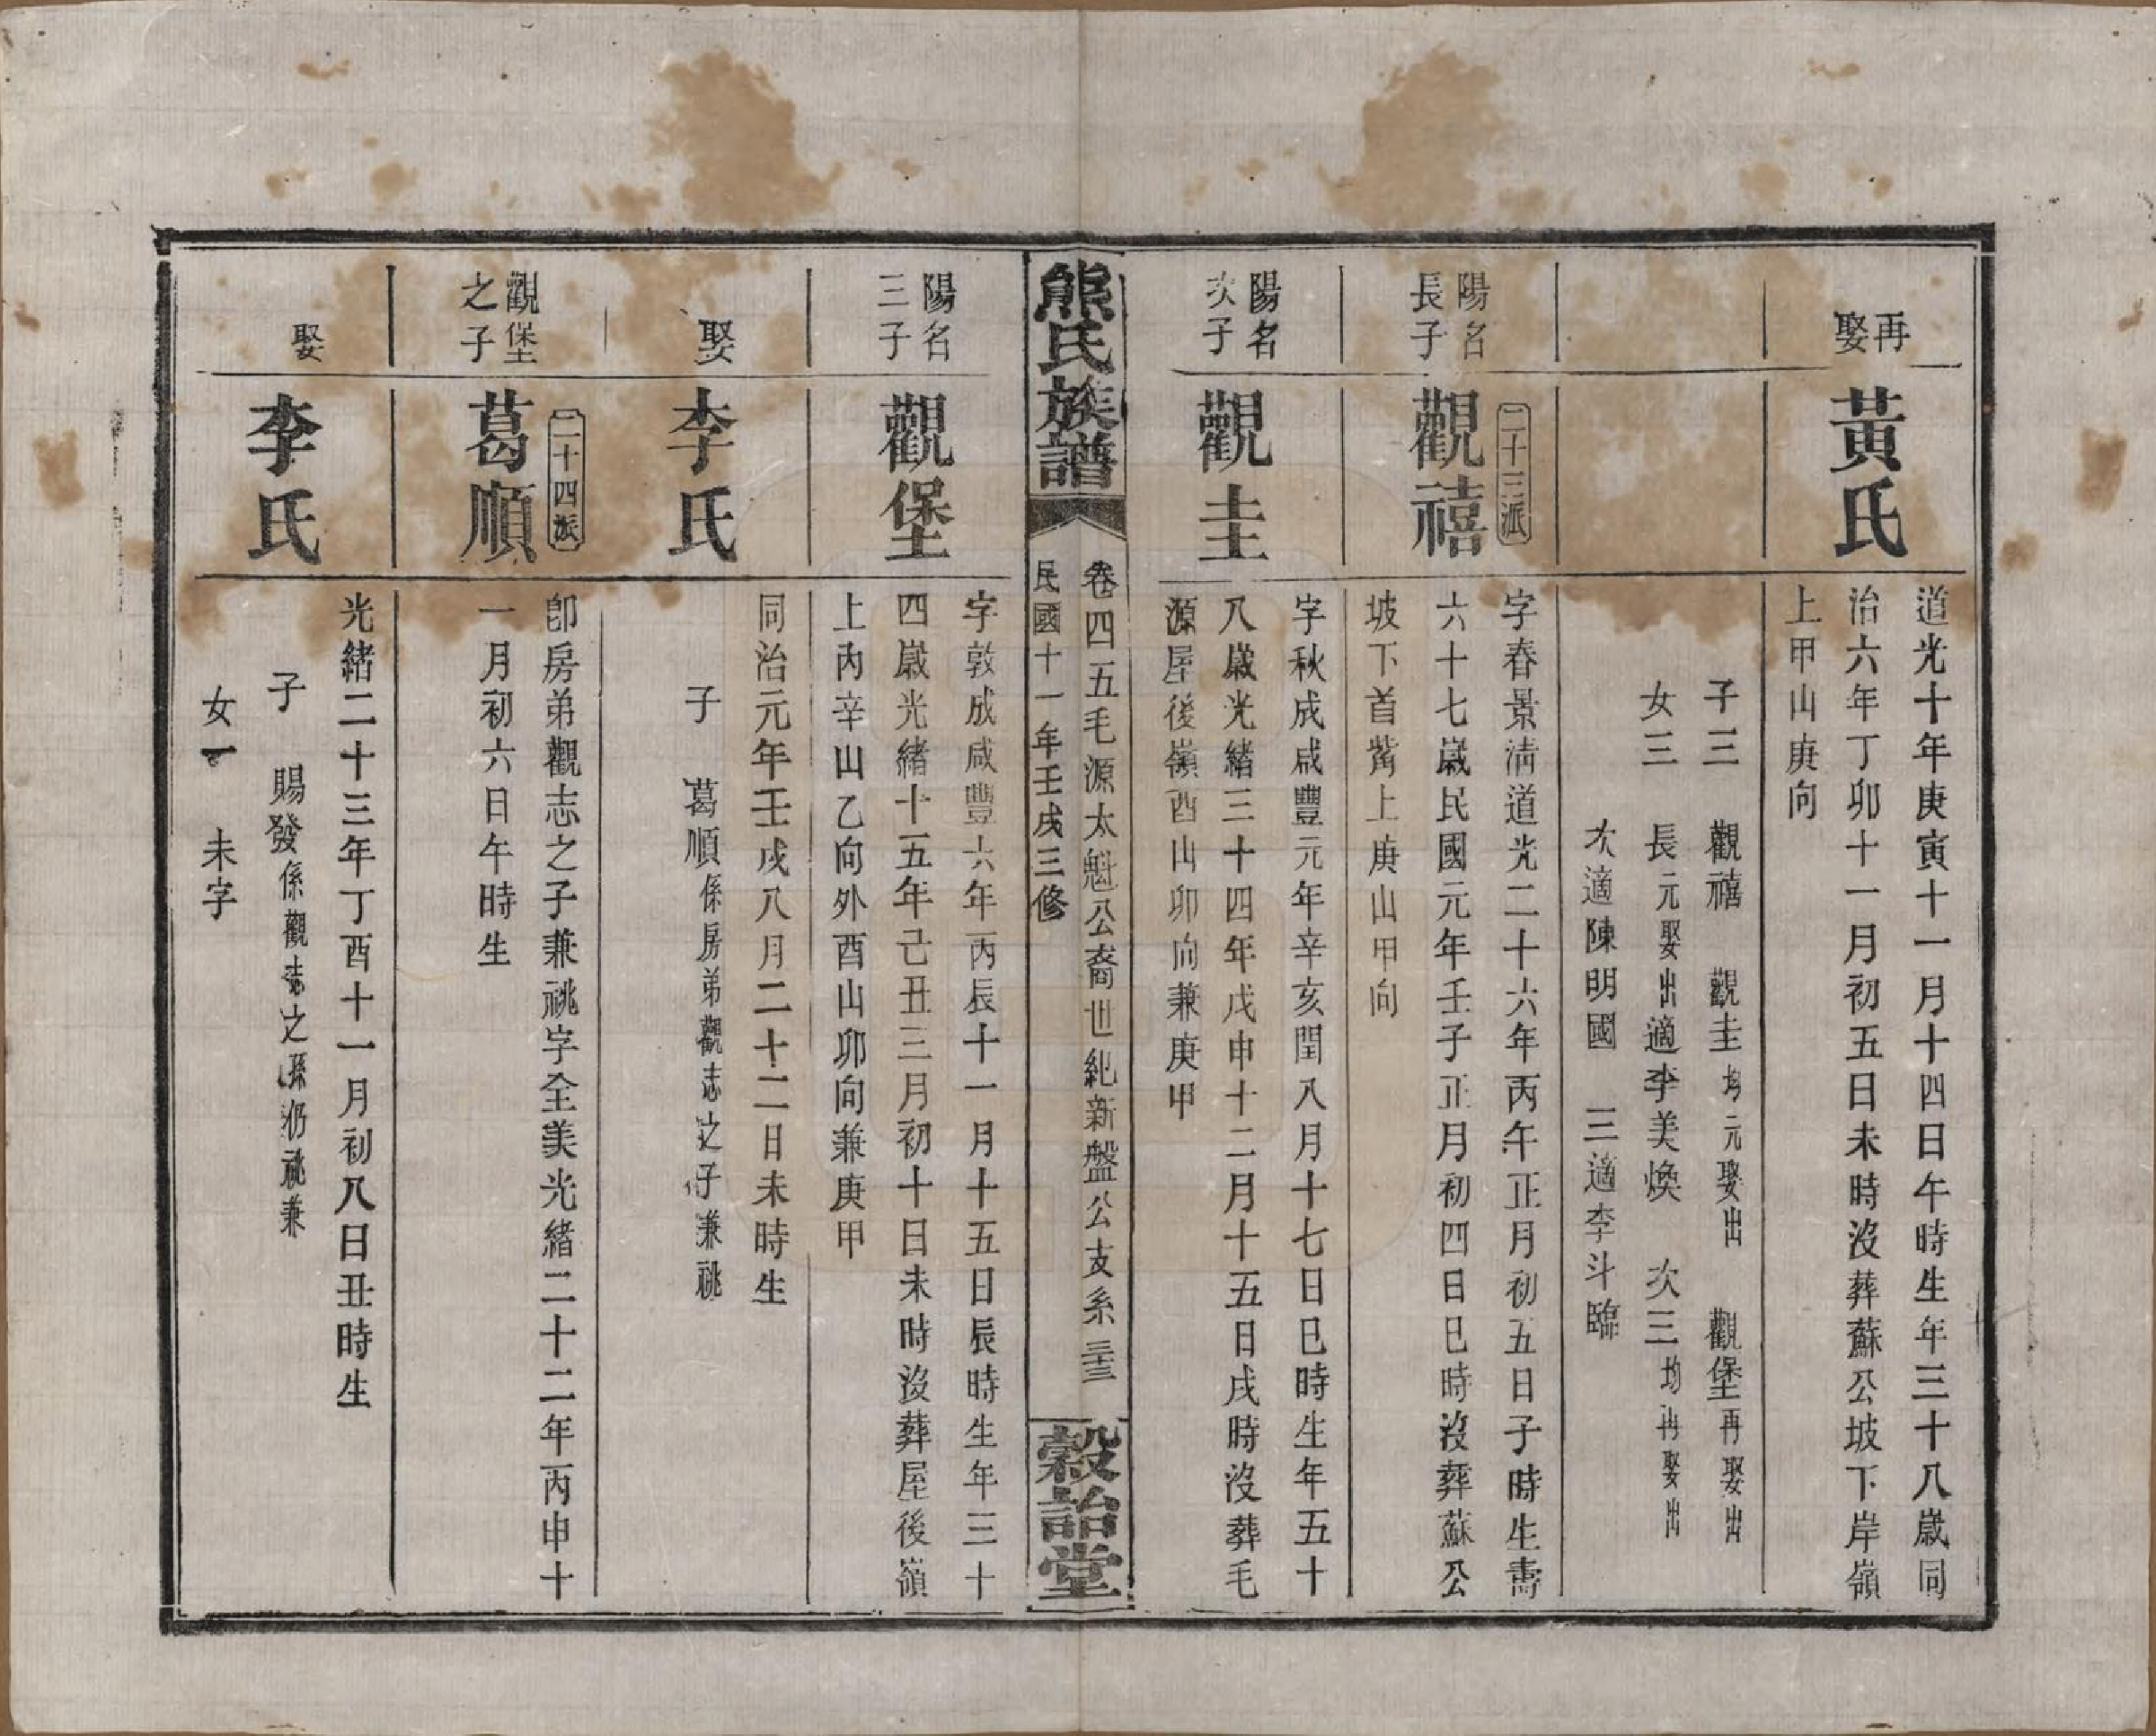 再娶
黃氏
道光十年庚寅十一月十四日午時生年三十八歲同
治六年丁卯十一月初五日未時沒葬蘇公坡下岸嶺
上甲山庚向
子三 觀禧 觀圭均元娶出 觀堡再娶出
女三 長元娶出適李美煥 次三均再娶出
次適陳明國 三適李斗臨
陽名長子
二十三派
觀禧
字春景清道光二十六年丙午正月初五日子時生壽
六十七歲民國元年壬子正月初四日巳時沒葬蘇公
坡下首嘴上庚山甲向
陽名次子
觀圭
字秋成咸豐元年辛亥閏八月十七日巳時生年五十
八歲光緒三十四年戊申十二月十五日戌時沒葬毛
源屋後嶺酉山卯向兼庚甲
熊氏族譜
卷四五毛源太魁公裔世紀新盤公支系 三十三
民國十一年壬戌三修
穀詒堂
陽名三子
觀堡
字敦成咸豐六年丙辰十一月十五日辰時生年三十
四歲光緒十五年己丑三月初十日未時沒葬屋後嶺
上內辛山乙向外酉山卯向兼庚甲
娶
李氏
同治元年壬戌八月二十二日未時生
子 葛順係房弟觀志之子兼祧
觀堡之子
二十四派
葛順
卽房弟觀志之子兼祧字全美光緒二十二年丙申十
一月初六日午時生
娶
李氏
光緒二十三年丁酉十一月初八日丑時生
子 賜發係觀志之孫仍祧兼
女一 未字